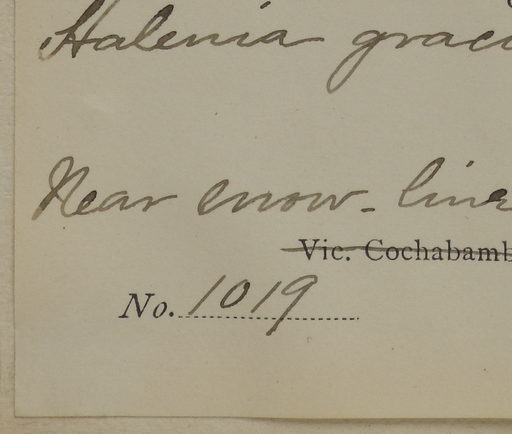 Halenia grac
Near snow-line
Vic. Cochabamb
No. 1019